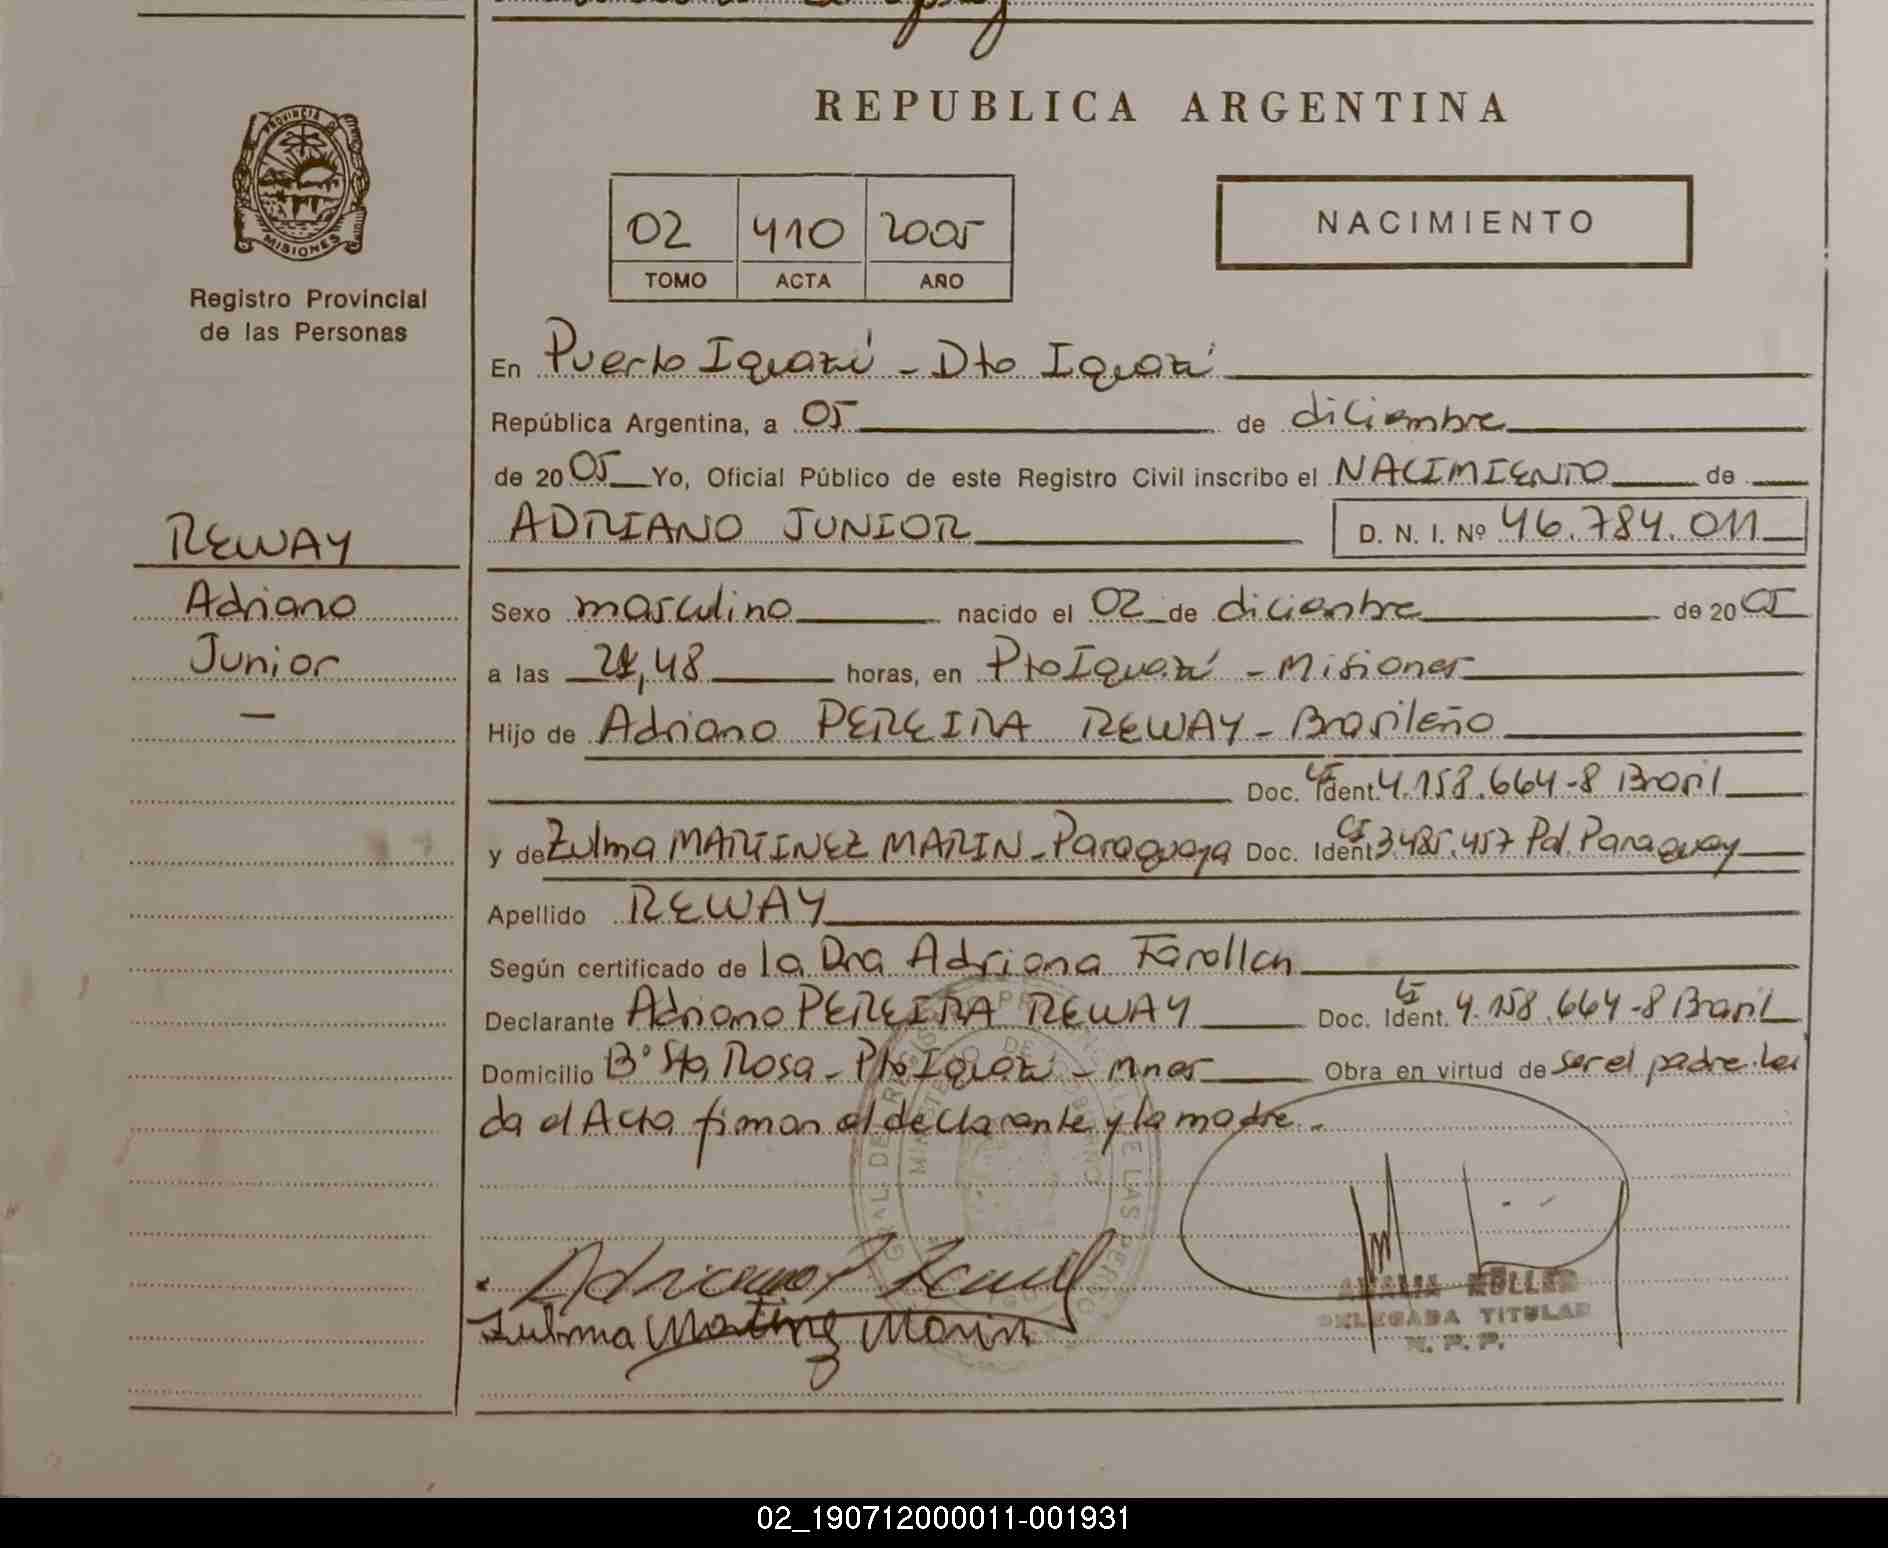 REPUBLICA ARGENTINA
PROVINCIA DE
MISIONES
Registro Provincial
de las Personas
02 410 2005
TOMO ACTA AÑO
NACIMIENTO
En Puerto Iguazú - Dto Iguazú
República Argentina, a 05 de diciembre
de 2005 Yo, Oficial Público de este Registro Civil inscribo el NACIMIENTO de
ADRIANO JUNIOR D. N. I. Nº 46.784.011
REWAY
Adriano
Junior
Sexo masculino nacido el 02 de diciembre de 2005
a las 21,48 horas, en Pto Iguazú - Misiones
Hijo de Adriano PEREIRA REWAY - Brasileño
Doc. Ident. CI 4.158.664-8 Brasil
y de Zulma MARTINEZ MARIN - Paraguaya Doc. Ident CI 3.485.457 Pol. Paraguay
Apellido REWAY
Según certificado de la Dra Adriana
Declarante Adriano PEREIRA REWAY Doc. Ident. CI 4.158.664-8 Brasil
Domicilio Bº Sta Rosa - Pto Iguazú - Mnes Obra en virtud de ser el padre. Lei
da el Acta firman el declarante y la madre.-
Adriano P Reway
Zulma Martinez Marin
AMALIA MULLER
DELEGADA TITULAR
R. P. P.
02_190712000011-001931